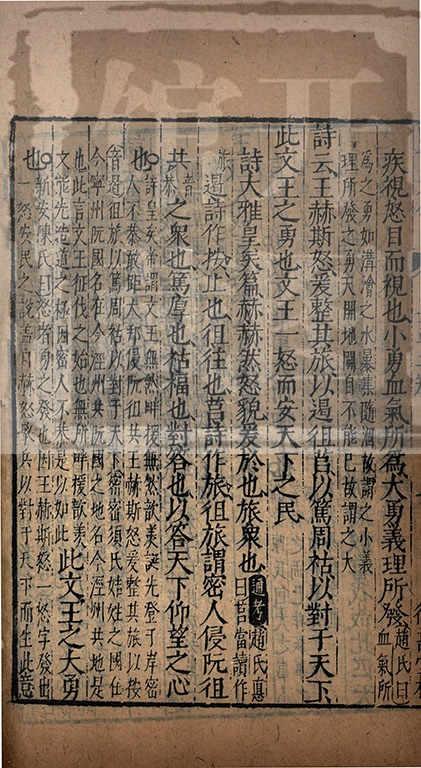 疾視怒目而視也小勇血氣所為大勇義理所發趙氏曰血氣所
為之勇如溝澮之水暴集隨涸故謂之小義
理所發之勇天開地闢自不能已故謂之大
詩云王赫斯怒爰整其旅以遏徂莒以篤周祜以對于天下
此文王之勇也文王一怒而安天下之民
詩大雅皇矣篇赫赫然怒貌爰於也旅衆也通考趙氏悳曰莒當讀作
旅遏詩作按止也徂往也莒詩作旅徂旅謂密人侵阮徂
共音恭之衆也篤厚也祜福也對答也以答天下仰望之心
也○詩皇矣帝謂文王無然畔援無然歆羨誕先登于岸密
人不恭敢距大邦侵阮徂共王赫斯怒爰整其旅以按
音遏徂旅以篤周祜以對于天下密密須氏姞姓之國在
今寧州阮國名在今涇州共阮國之地名今涇州共池是
也此言文王征伐之始也無所畔援歆羨
文能先造道之極因密人不恭是以如此此文王之大勇
也○新安陳氏曰怒者勇之發也因王赫斯怒一怒字發出
一怒安民之說蓋自赫怒整兵以對于天下而生此意